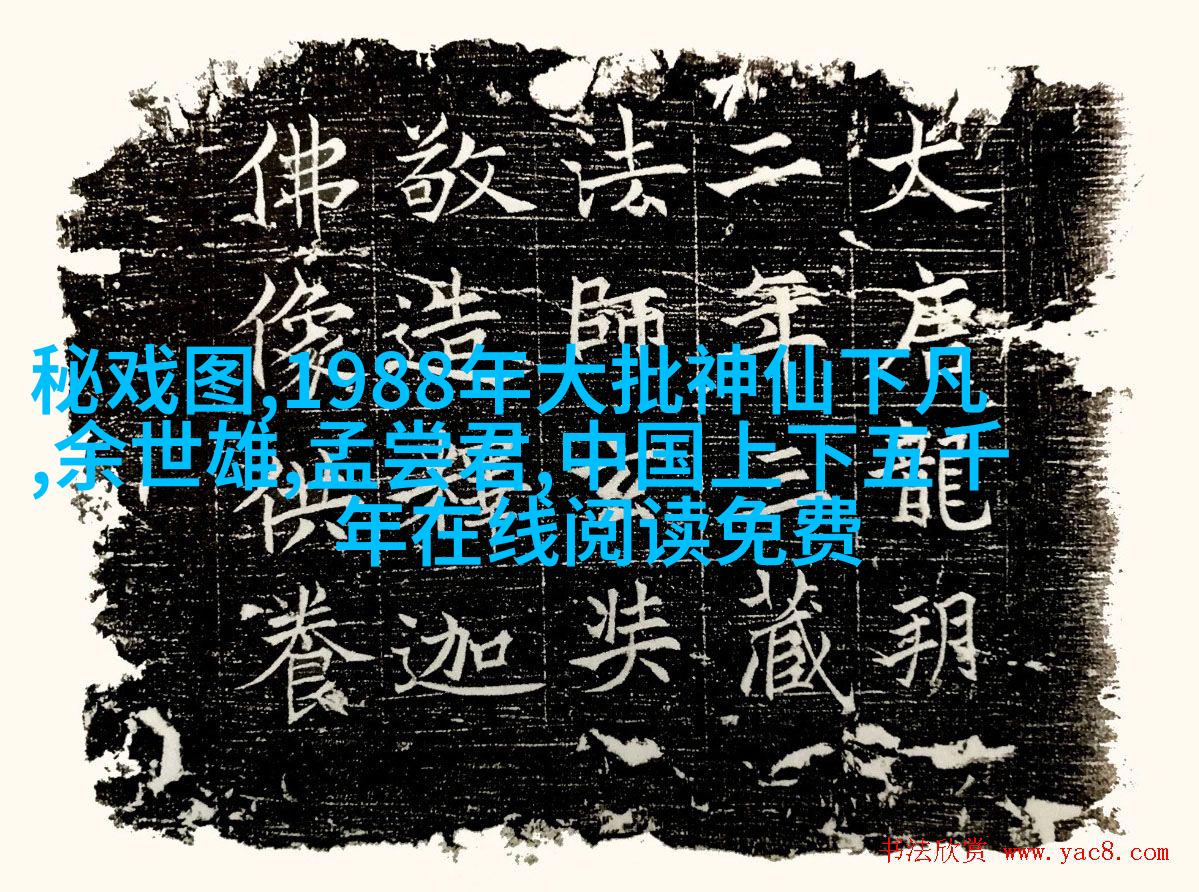 大唐龍朔
二年三藏
法師玄奘
敬造釋迦
佛像供養
秘戏图,1988年大批神仙下凡
,余世雄,孟尝君,中国上下五千
年在线阅读免费
书法欣赏 www.yac8.com